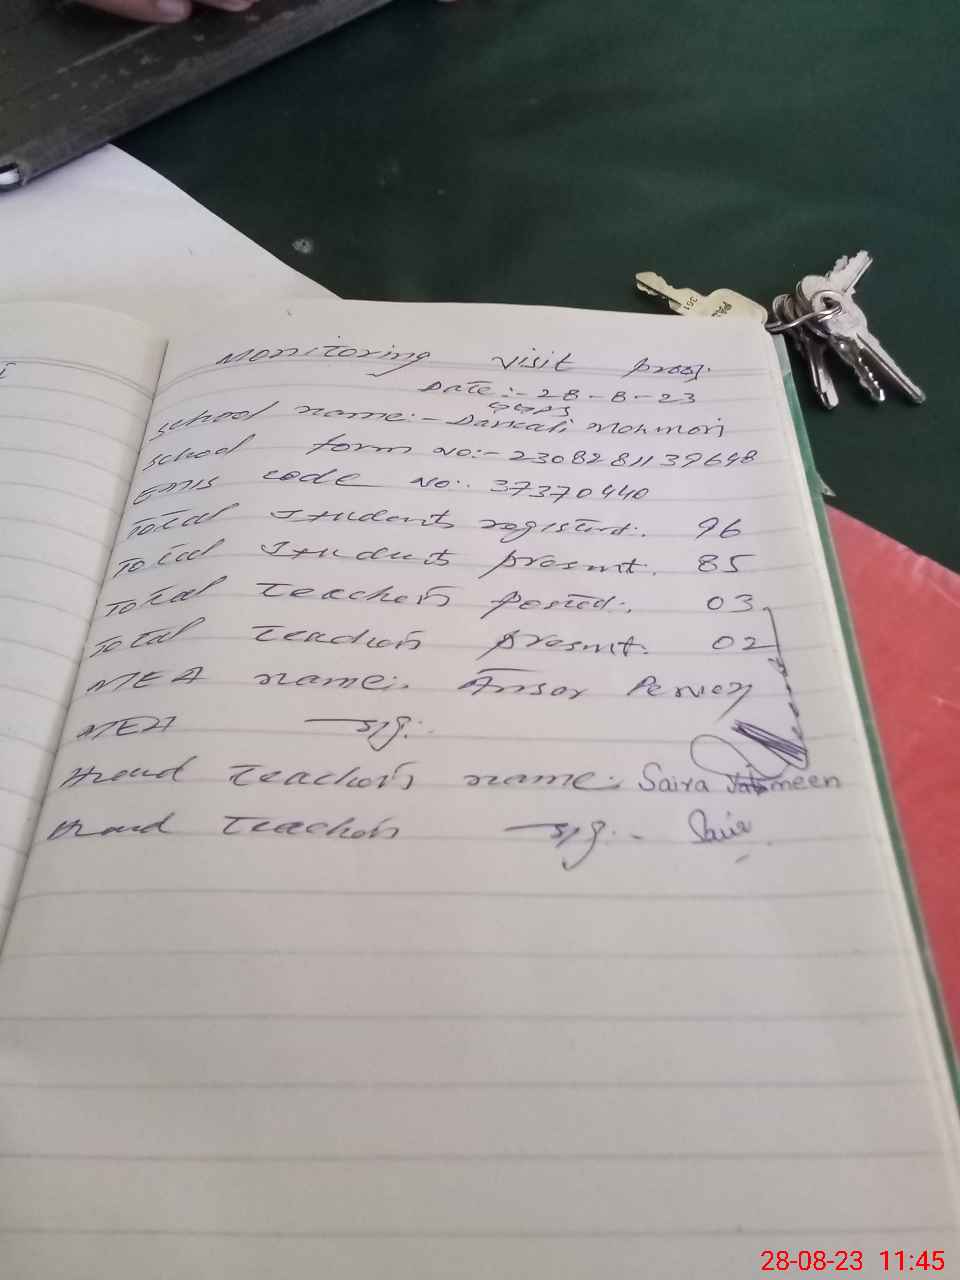 Monitoring visit proof.
Date:- 28-8-23
GGPS
School name:- Darkali Mohmori
School form No:- 2308281139648
EMIS code No:. 37370440
Total Students registerd:. 96
Total Students present. 85
Total Teachers posted:. 03
Total Teachers present: 02
MEA name:. Ansor Pervez
MEA sig:.
Head Teacher's name:. Saira Yasmeen
Head Teacher's sig:- Saira
361
28-08-23 11:45